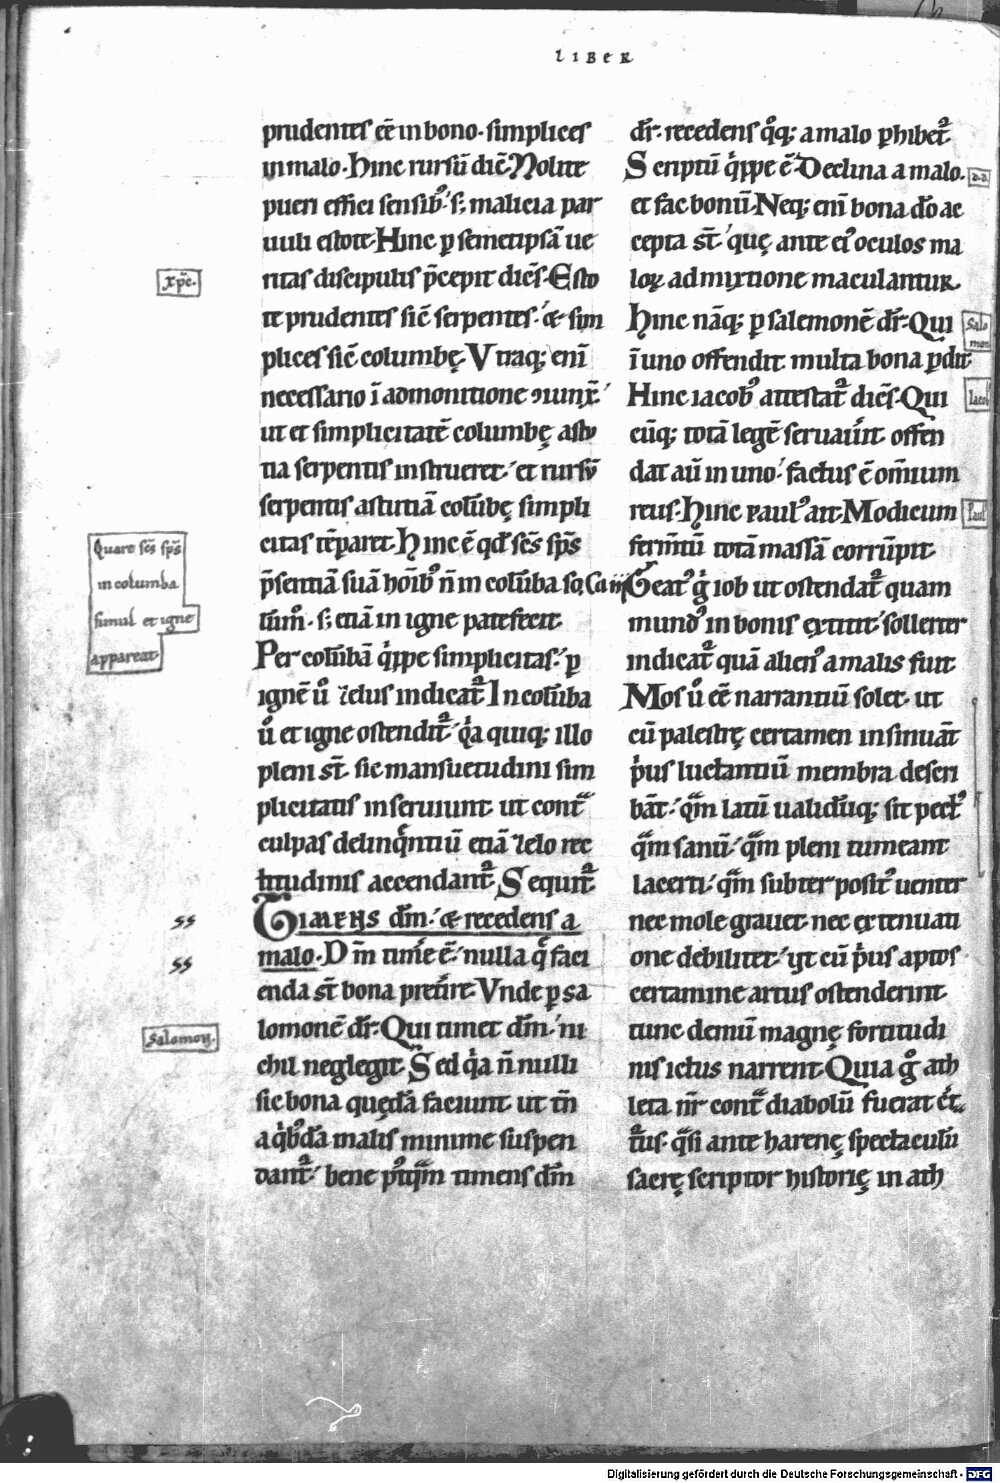 LIBER
prudentes eē in bono· simplices
in malo· Hinc rursū dic̄· Nolite
pueri effici sensib;ꝰ s; malicia par
uuli estote· Hinc ꝑ semetipsā ue
ritas discipulis p̄cepit dicēs· Esto
te prudentes sic̄ serpentes· & sim
plices sic̄ columbę· Vtraq; enī
necessario ī admonitione ꝯiunx̄·
ut et simplicitatē columbę astu
tia serpentis instrueret· et rursū
serpentis astutiā colūbę simpli
citas tēparet· Hinc ē qd̄ sc̄s sp̄s
p̄sentiā suā hoīb; n̄ in colūba so
lūm· s; etiā in igne patefecit·
Per colūbā q̍ppe simplicitas· ꝑ
ignē ů zelus indicat̄· In colūba
ů et igne ostendit̄· q̍a quiq; illo
pleni st̄· sic mansuetudini sim
plicitatis inseruiunt· ut cont̄
culpas delinq̄ntiū etiā zelo rec
titudinis accendant̄· Sequit̄·
TIMENS dm̄· & recedens a
malo· Dm̄ timére ē· nulla q̄ faci
enda st̄ bona pret̄ire· Vnde ꝑ sa
lomonē dr̄· Qui timet dm̄· ni
chil neglegit· Sed q̍a n̄nulli
sic bona quędā faciunt· ut tm̄
a q̍b;dā malis minime suspen
dant̄· bene p;tq̄m timens dm̄
dr̄· recedens q̊q; a malo ꝑhibet̄·
Scriptū q̍ppe ē· Declina a malo·
et fac bonū· Neq; enī bona dō ac
cepta st̄· quę ante eiꝰ oculos ma
loꝝ admixtione maculantur·
Hinc nāq; ꝑ salemonē dr̄· Qui
ī uno offendit· multa bona ꝑdit·
Hinc iacobꝰ attestat̄ dicēs· Qui
cūq; totā legē seruauīt· offen
dat aū in uno· factus ē om̄ium
reus· Hinc paulꝰ ait· Modicum
fermtū totā massā corrūpit·
Geatꝰ g̍ iob ut ostendat̄ quam
mundꝰ in bonis extitit· sollerter
indicat̄ quā alienꝰ a malis fuit·
Mos ů eē narrantiū solet· ut
cū palestrę certamen insinuāt·
p̍us luctantiū membra descri
bāt· q̄m latū ualidūq; sit pectꝰ·
q̄m sanū· q̄m pleni tumeant
lacerti· q̄m subter positꝰ uenter
nec mole grauet· nec extenuati
one debilitet· ut cū p̍us aptos
certamine artus ostenderint·
tunc demū magnę fortitudi
nis ictus narrent· Quia g̊ ath
leta nr̄ cont̄ diabolū fuerat ćta
tur̄us· q̍si ante harenę spectaculū
sacrę scriptor historię in ath
xp̄c·
Quare sc̄s sp̄s
in columba
simul et igne
appareat
ss
ss
Salamon·
D·D·
Salo
mon
Iacob
Paul